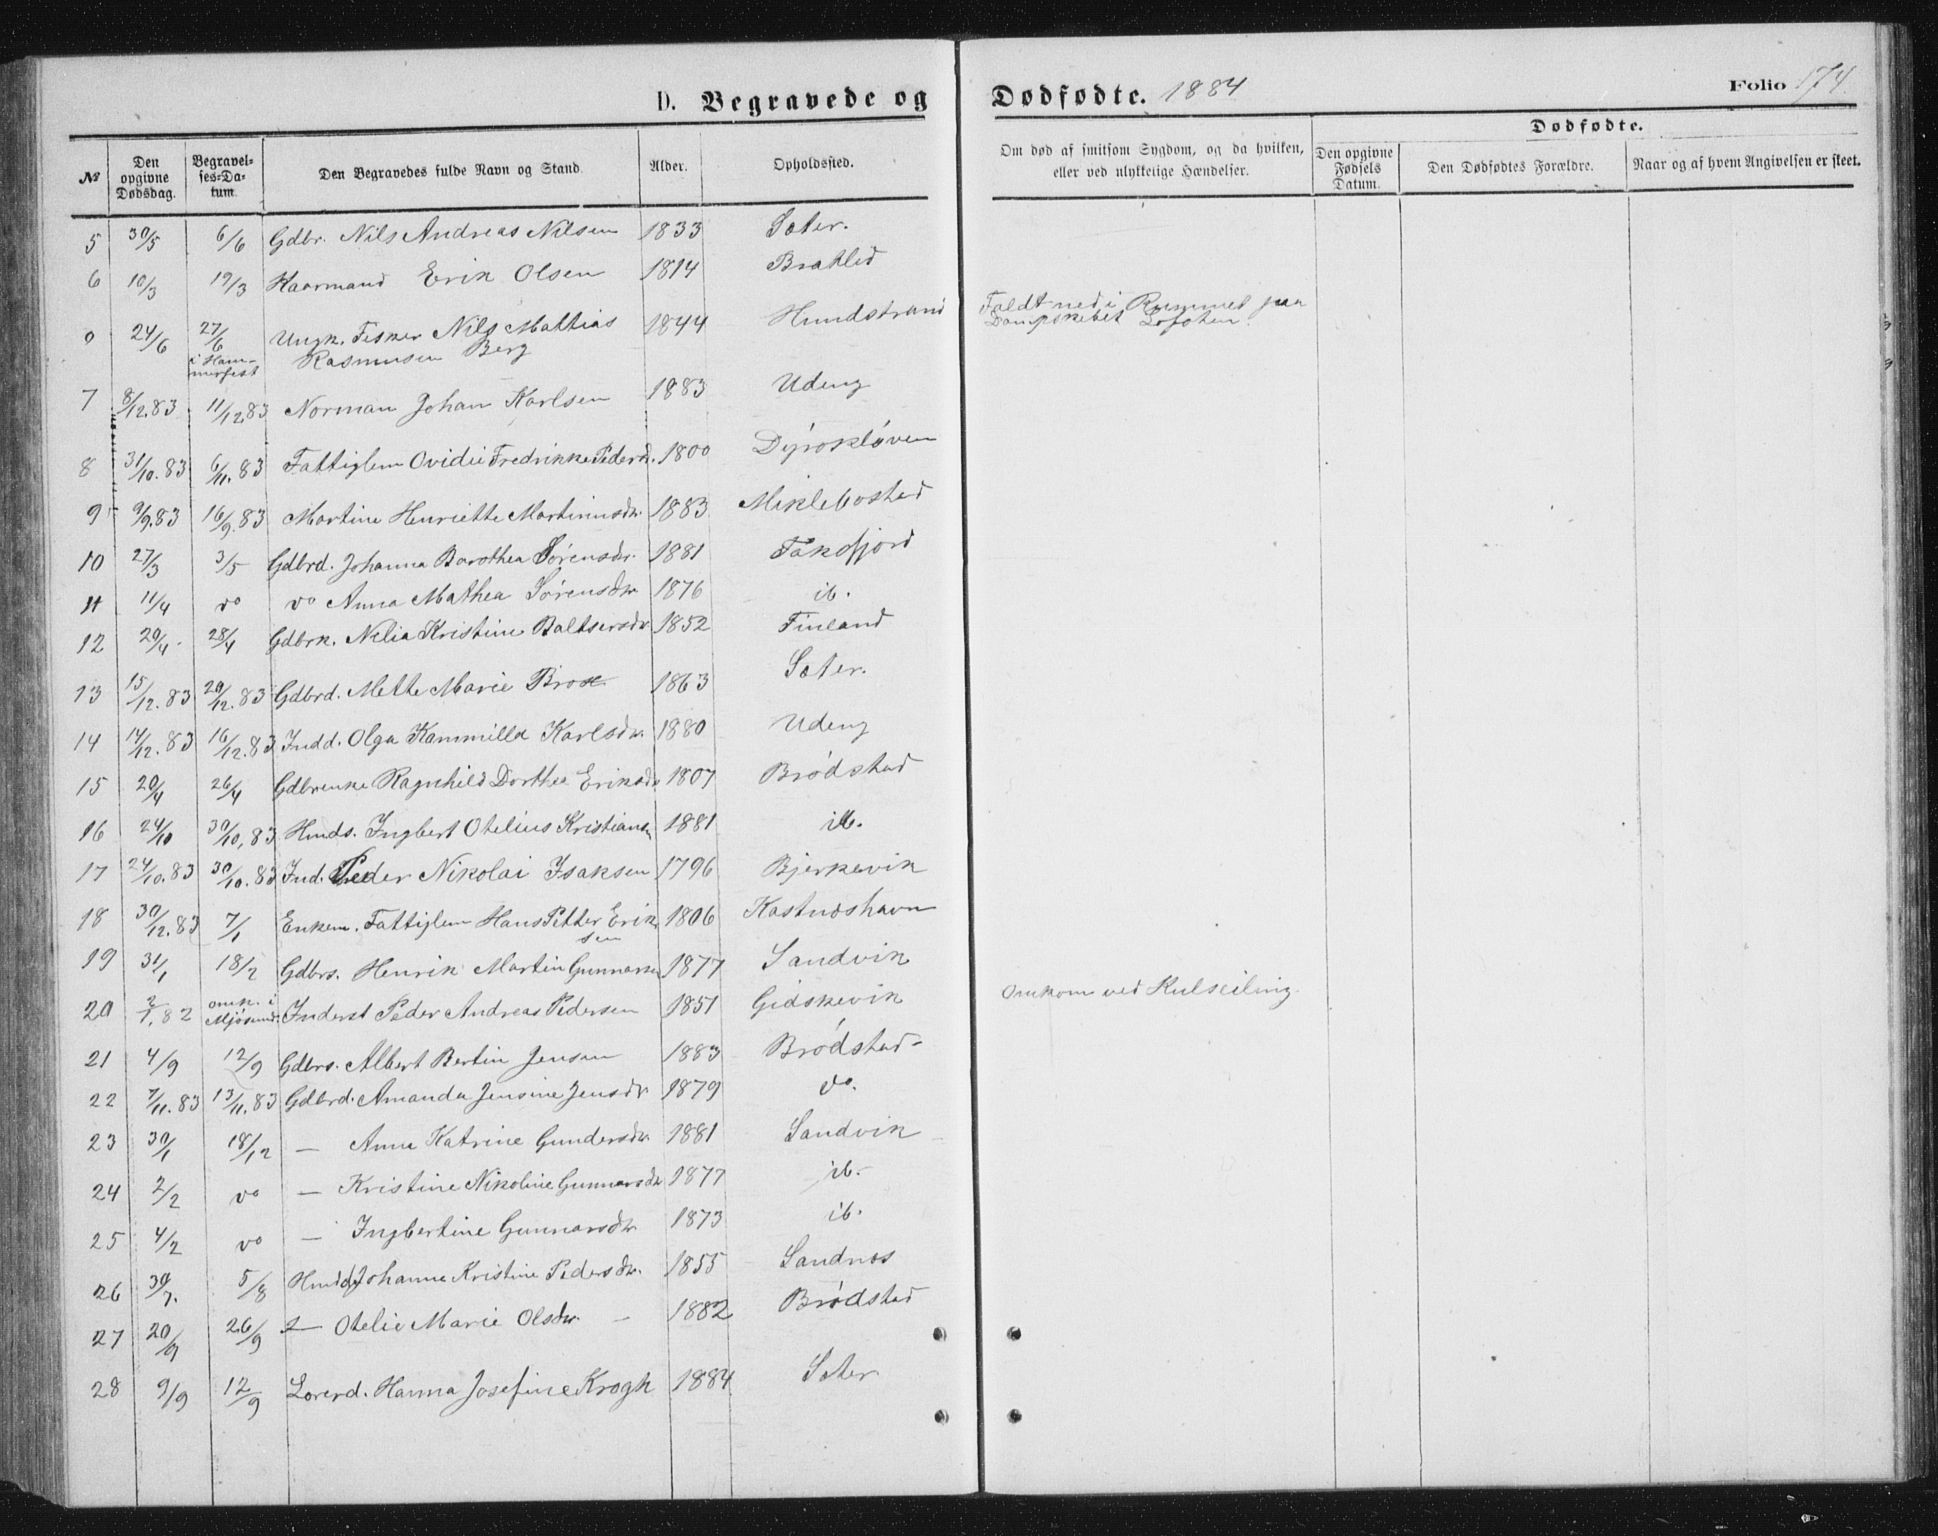 D. Begravede og Dødfødte. 1884 Folio 174
Dødfødte.
№ Den opgivne Dødsdag. Begravelses-Datum. Den Begravedes fulde Navn og Stand. Alder. Opholdssted. Om død af smitsom Sygdom, og da hvilken, eller ved ulykkelige Hændelser. Den opgivne Fødsels Datum. Den Dødfødtes Forældre. Naar og af hvem Angivelsen er skeet.
5 30/5 6/6 Gdbr. Nils Andreas Nilsen 1833 Sæter.
6 10/3 19/3 Haarmand Erik Olsen 1814 Bratlid
0 24/6 27/6 i Hammerfest Ungk. Fisker Nils Mattias Rasmussen Berg 1844 Hundstrand Faldt ned i Rummet paa Dampskibet Lofoten.
7 8/12.83 11/12.83 Norman Johan Karlsen 1883 Udeng
8 31/10.83 6/11.83 Fattiglem Ovidie Fredrikke Pedersd. 1800 Dýrøkløven
9 9/9.83 16/9.83 Martine Henriette Martinusdr. 1883 Miklebostad
10 27/3 3/5 Gdbrd. Johanna Dorothea Sørensdr. 1881 Faksfjord
11 11/4 do do Anna Mathea Sørensdr 1876 ib.
12 20/4 28/4 Gdbrk. Nilia Kristine Baltsersdr 1852 Finland
13 15/12.83 20/12.83 Gdbrd. Mette Marie Brox 1863 Sæter.
14 14/12.83 16/12.83 Indd. Olga Kammilla Karlsdr. 1880 Udeng
15 20/4 26/4 Gdbrenke Ragnhild Dorthea Eriksdr 1807 Brødstad
16 24/10 30/10.83 Hmds. Ingbert Otelius Kristians 1881 ib.
17 24/10.83 30/10.83 Ind. Peder Nikolai Isaksen 1796 Bjerkevik
18 30/12.83 7/1 Enkem. Fattiglem Hans Petter Eriksen 1806 Kastneshavn
19 31/1 18/2 Gdbrs. Henrik Martin Gunnarsen 1877 Sandvik
20 2/1.82 omk. i Mjøsund. Inderst Peder Andreas Pedersen 1851 Gidskevik Omkom ved Kulseiling.
21 4/9 12/9 Gdbrs. Albert Bertin Jensen 1883 Brødstad
22 7/11.83 13/11.83 Gdbrd. Amanda Jensine Jensdr 1879 do.
23 30/1 18/12 — Anna Katrine Gundersdr. 1881 Sandvik
24 2/2 do — Kristine Nikoline Gunnarsdr 1877 ib.
25 4/2 do — Ingbertine Gunnarsdr 1873 ib.
26 30/7. 5/8 Hmdd. Johanna Kristine Pedersdr. 1855 Sandnes
27 20/9 26/9 — Otelie Marie Olsdr. 1882 Brødstad
28 9/9 12/9 Lærerd. Hanna Josefine Krogh 1884 Sæter